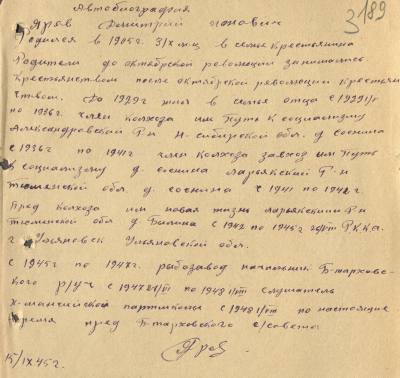 Автобиография
3 189
Яров Дмитрий
Родился в 1905г 3/X м-ц в семье крестьянина
Родители до октябрской революции занимались
крестьянством после октябрской революции крестьян
ством. До 1929г жил в семье отца с 1929 г
по 1936г. член колхоза им Путь к социализму
Александровский Р-н Н-сибирской обл. д соснина
с 1936г по 1941г член колхоза завхоз им Путь
к социализму д. соснина Ларьякский Р-н
тюменской обл. д. соснина с 1941 по 1942г
пред колхоза им новая жизнь Ларьякский Р-н
тюменской обл д с 1942 по 1945г Р.К.К.А.
г Ульяновск Ульяновской обл.
с 1945г по 1947г. рыбозавод начальник Б-тархов-
ского р/уч с 1947 по 1948 слушатель
Х-мансийской партшколы с 1948 по настоящие
время пред Б-тарховского с/совета
Яров
15/IX 45г.